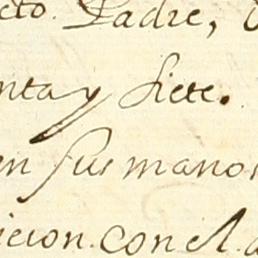 cto. Padre,
nta y siete.
en sus manos
icion. con el